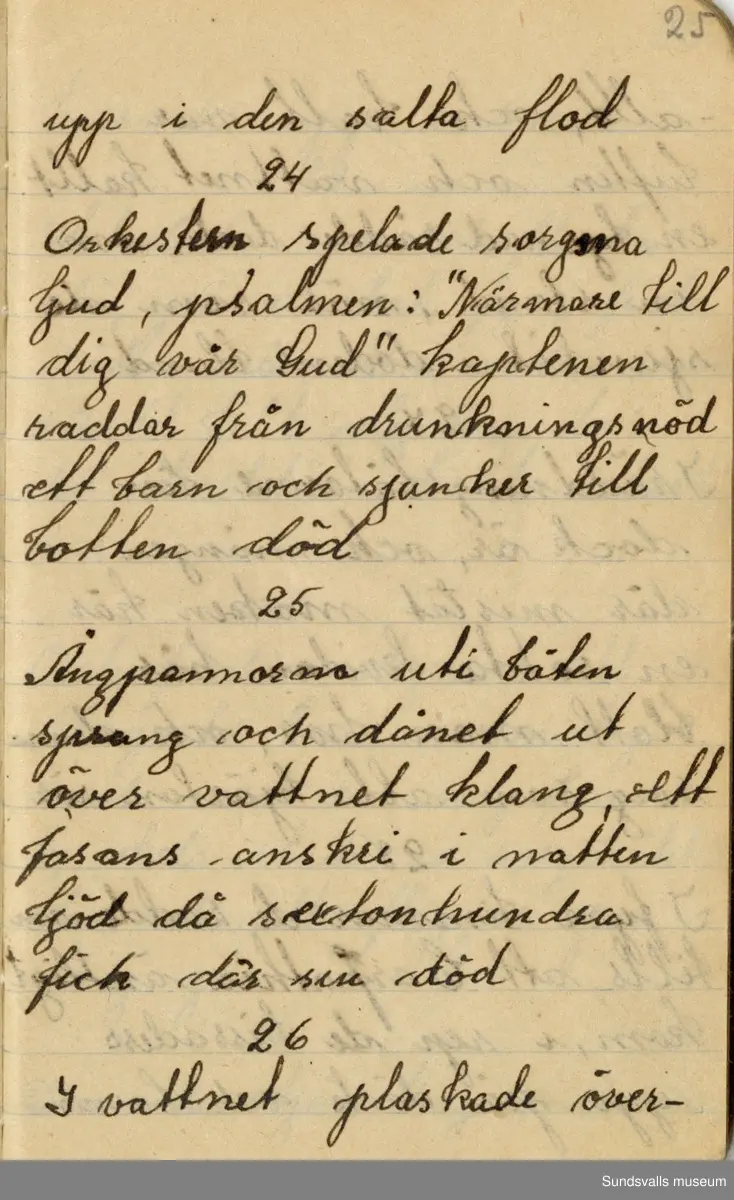 25
upp i den salta flod
24
Orkestern spelade sorgsna
ljud, psalmen: "Närmare till
dig vår Gud" kaptenen
räddar från drunkningsnöd
ett barn och sjunker till
botten död
25
Ångpannorna uti båten
sprang och dånet ut
över vattnet klang, ett
fasans anskri i natten
ljöd då sextonhundra
fick där sin död
26
I vattnet plaskade över-
Sundsvalls museum